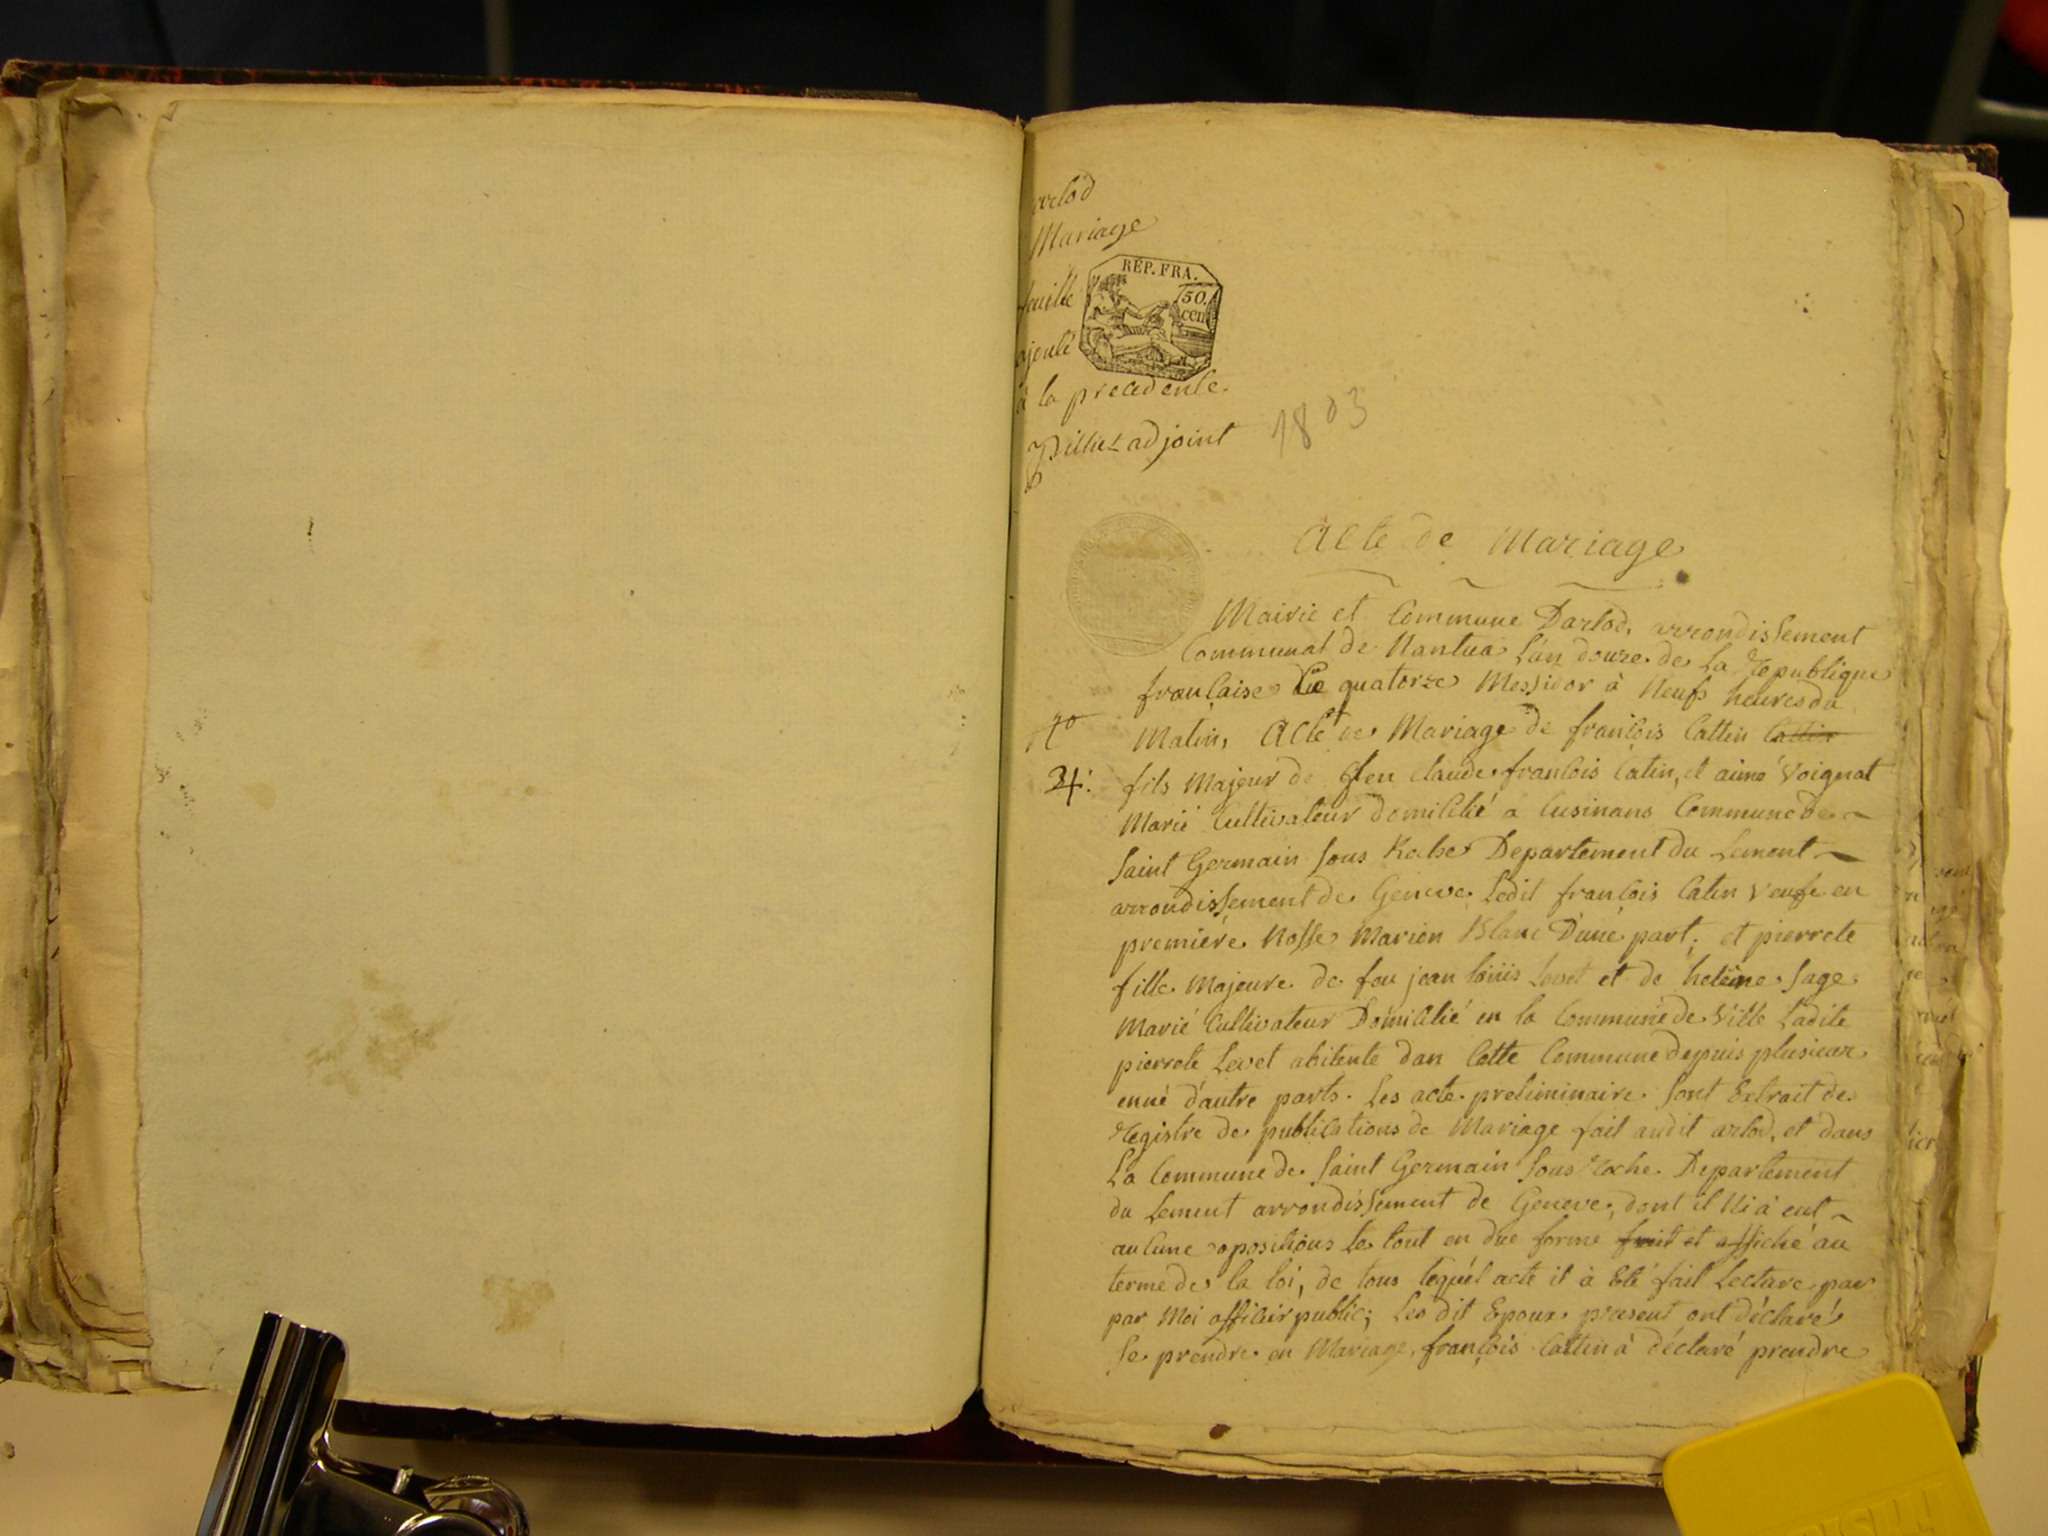 arlod
Mariage
REP. FRA.
50.
cen
feuille
ajoulé
à la precedente.
adjoint
1803
Acte de Mariage
Mairie et Commune Darlod, arrondissement
Communal de Nantua L'an douze de La republique
française Le quatorze Messidor à Neufs heures du
No
Matin, Acte de Mariage de franCois Cattin Cattin
24.
fils Majeur de feu Claude franCois Catin, et aimé Voignat
Marié Cultivateur domiCilié a Cusinans Commune de
Saint Germain Sous Departement du Lement
arrondissement de Geneve Ledit franCois Catin Veufe en
premiére Nosse Marion Blanc D'une part; et pierrete
fille Majeure de feu jean loüis Levet et de heleine Sage
Marié Cultivateur DomiCilié en la Commune de Ville Ladite
pierrete Levet abitente dan Cette Commune depuis plusieur
enné d'autre parts. Les acte preliminaire Sont Extrait de
Registre de publiCations de Mariage fait audit arlod, et dans
La Commune de Saint Germain Sous Departement
du Lement arrondissement de Geneve, dont il Ni à eut
auCune opositions Le tout en due forme fait et affiché au
terme de la loi, de tous lequel acte il à Eté fait Lecture par
par Moi offiCier public; Les dit Epoux present ont déclaré
Se prendre en Mariage, françois Cattin à déclaré prendre